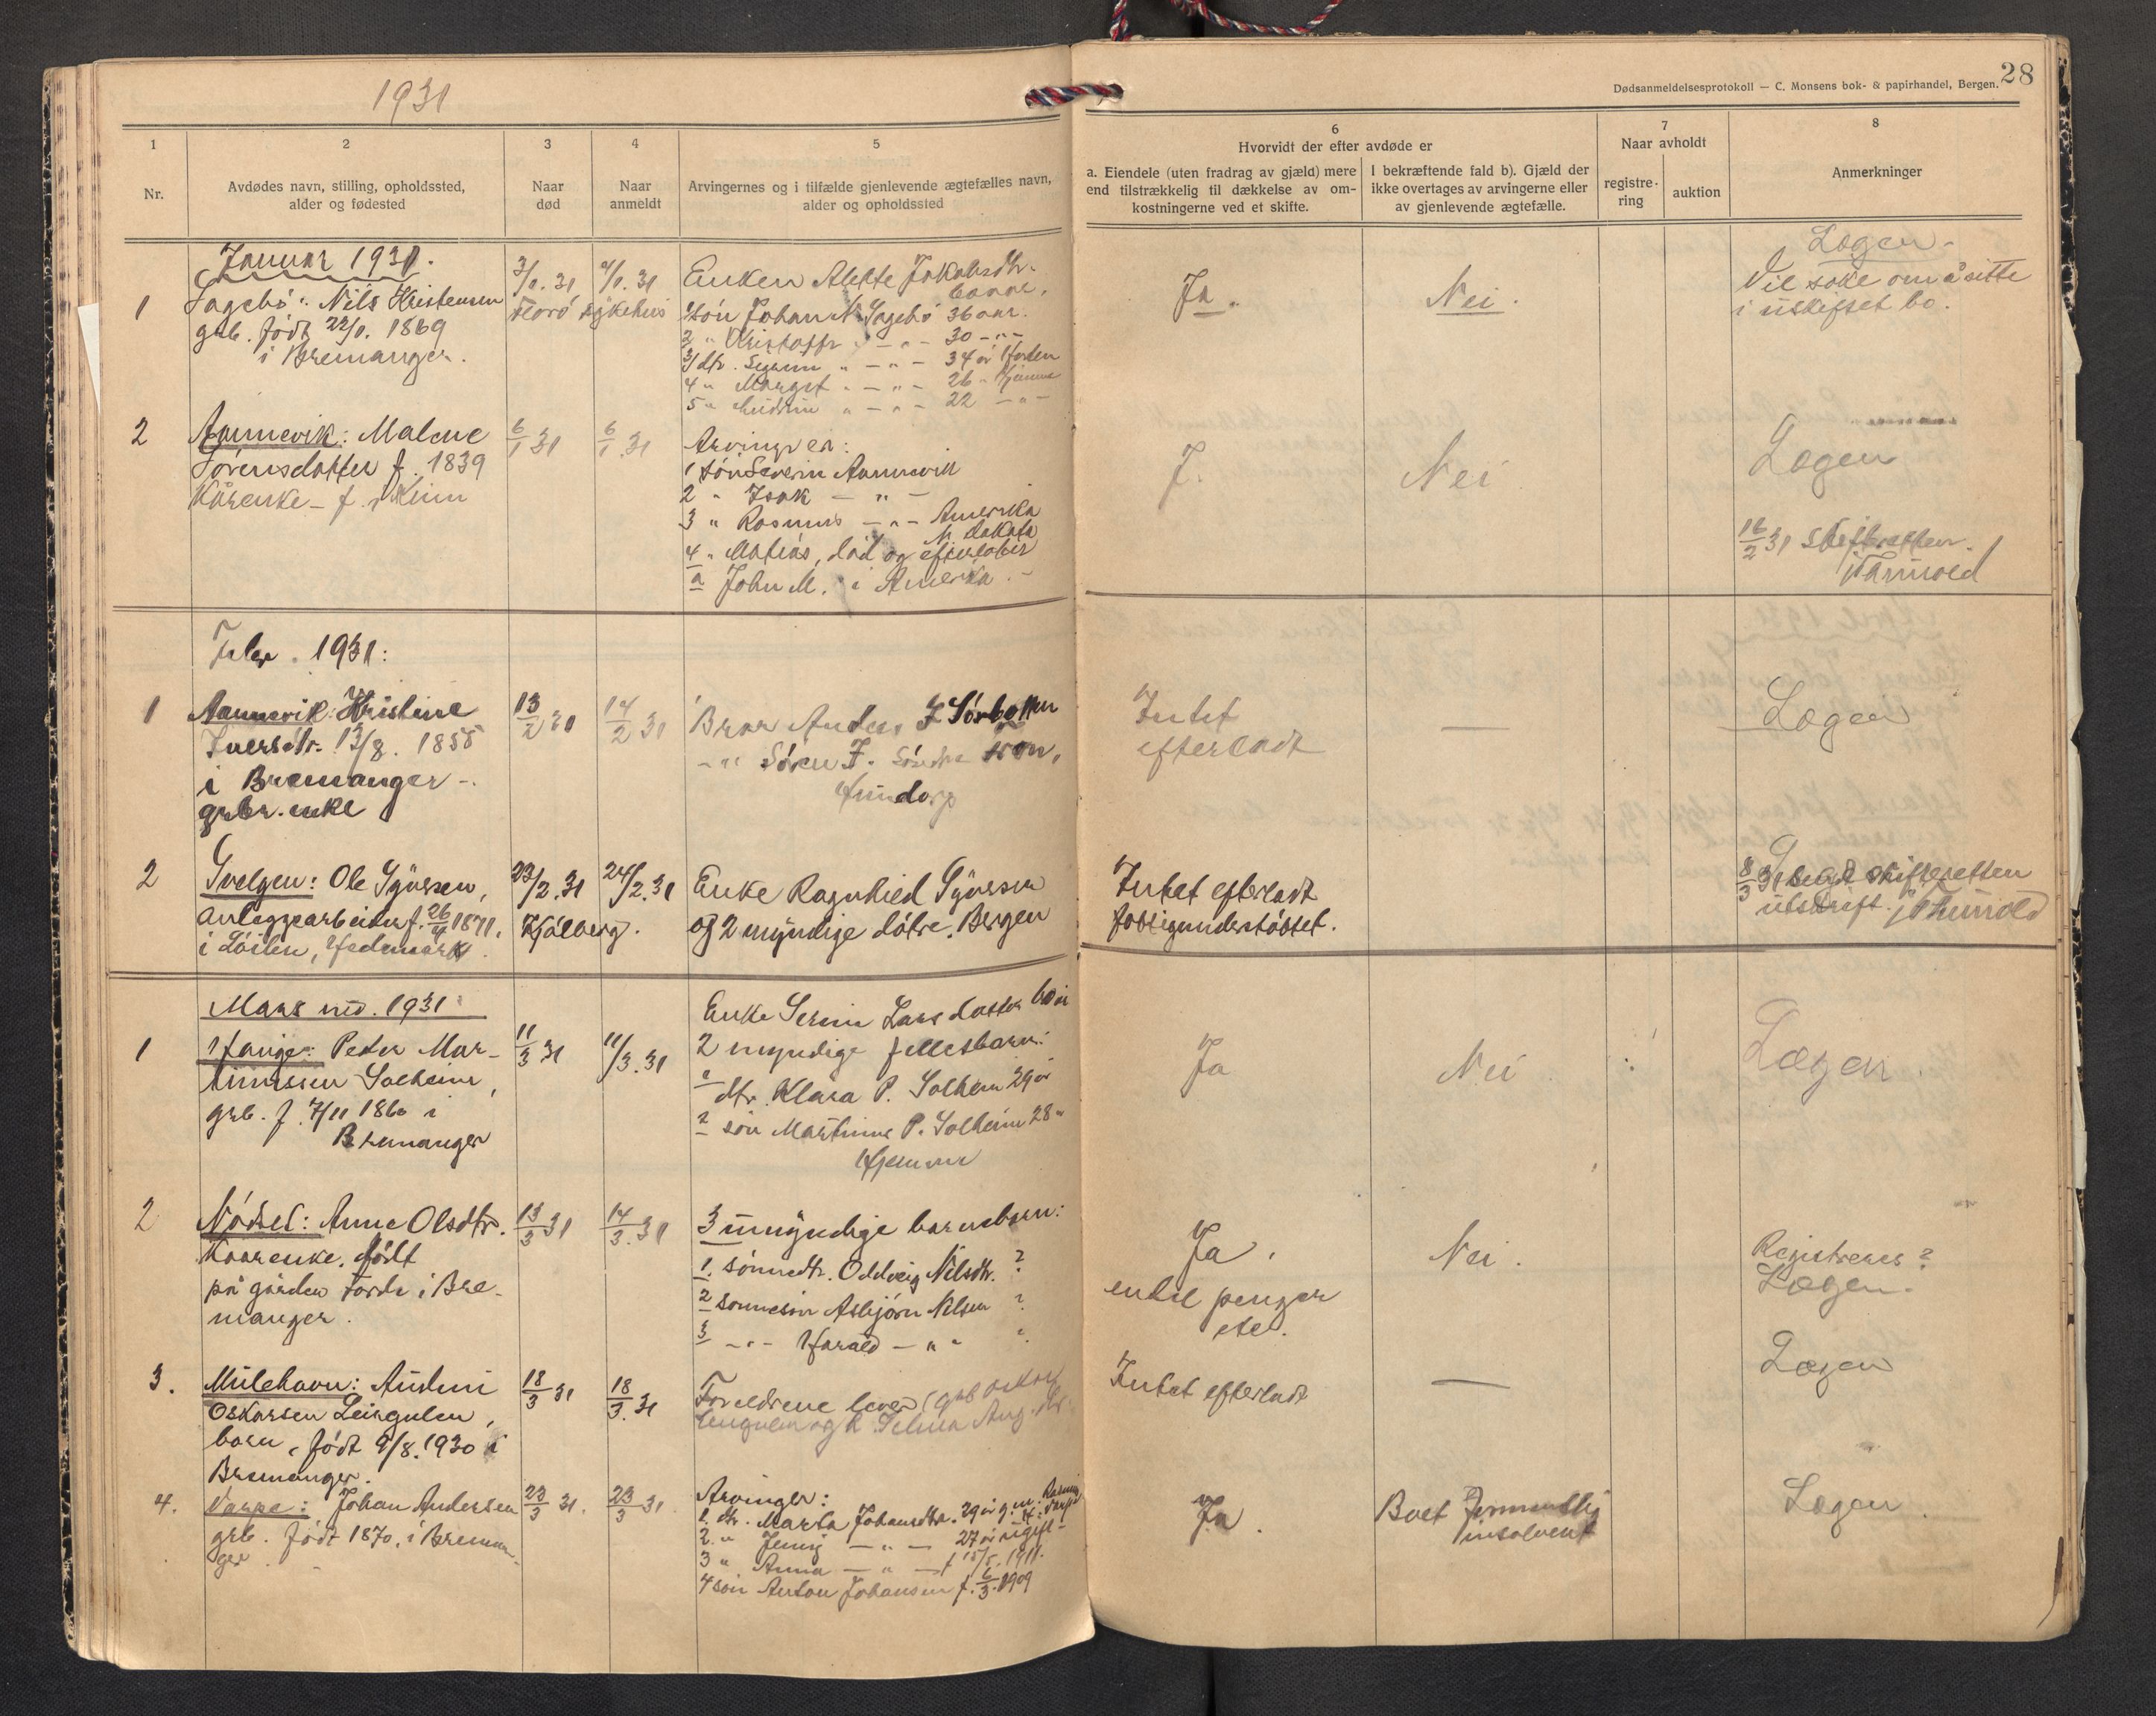 1931
28
Dødsanmeldelsesprotokoll — C. Monsens bok- & papirhandel, Bergen.
1
Nr.
2
Avdødes navn, stilling, opholdssted,
alder og fødested
3
Naar
død
4
Naar
anmeldt
5
Arvingernes og i tilfælde gjenlevende ægtefælles navn,
alder og opholdssted
6
Hvorvidt der efter avdøde er
a. Eiendele (uten fradrag av gjæld) mere
end tilstrækkelig til dækkelse av om-
kostningerne ved et skifte.
I bekræftende fald b). Gjæld der
ikke overtages av arvingerne eller
av gjenlevende ægtefælle.
7
Naar avholdt
registre-
ring
auktion
8
Anmerkninger
Januar 1931.
1
Sagebø: Nils Kristensen
grb. født 22/1. 1869
i Bremanger.
3/1.31
Florø sykehus
4/1.31
Enken Alette Jakobsdtr.
60 aar.
1 søn Johan N. Sagebø 36 aar.
2 " Kristoffr " — " — 30 — " —
3 dtr. " — " — 34 år
4 " Margit " — " — 26 " hjemme
5 " " — " — 22 — " —
Ja.
Nei.
Lagen.
Vil søke om å sitte
i uskiftet bo.
2
Aannevik: Malene
Sørensdatter f. 1839
Kårenke — f. i Kinn
6/1 31
6/1.31
Arvinger er:
1 søn Severin Aannevik
2 " Isak — " —
3 " Rasmus — " — Amerika
N. Dakota
4 " Matias, død og efterlater
a John M. i Amerika. —
J.
Nei
Lagen
16/2 31 Skifteretten.
Febr. 1931:
1
Aannevik: Kristine
Iversdtr. 13/8. 1858
i Bremanger —.
grbr. enke
13/2 31
14/2 31
Bror Anders I Sørbotten
— " — Søren I.
Intet
efterladt
—
Lagen
2
Svelgen: Ole Syversen,
anleggsarbeider f. 26/4 1871.
i Løiten, Hedemark.
23/2.31
Kjølberg.
24/2.31
Enke Ragnhild Syversen
og 2 myndige døtre. Bergen
Intet efterladt
fattigunderstøttet.
8/3 31 skifteretten
utskrift.
Mars md. 1931
1
Hauge: Peder Mar-
tinussen Solheim,
grb. f. 7/11 1860 i
Bremanger
11/3 31
11/3.31
Enke Serine Larsdatter 60 år
2 myndige fellesbarn:
1 dtr. Klara P. Solheim 29 år
2 søn Martinus P. Solheim 28 "
Hjemme
Ja
Nei
Lagen.
2
Nødset: Anne Olsdtr.
Kaarenke, født
på gården Førde i Bre-
manger.
13/3 31
14/3.31
3 umyndige barnebarn:
1. sønnedtr. Oddveig Nilsdtr. ?
2 sønnesøn Asbjørn Nilsen ?
3 — " — Harald — " —
Ja.
endel penger
etc.
Nei.
Registreres?
Lagen.
3.
Mulehavn: Audun
Oskarsen Leirgulen,
barn, født 9/8.1930 i
Bremanger.
18/3 31
18/3.31
Foreldrene lever (grb Oskar
Leirgulen og k. Selma Aug.
Intet efterladt
—
Lagen
4.
Varpe: Johan Andersen
grb. født 1870. i Breman-
ger
23/3 31.
23/3 31.
Arvinger:
1. dtr. Marta Johansdtr. 29 år g.m.
2. " Jenny — " — 27 år ugift —
3 " Anna — " — f 15/5. 1911.
4 søn Anton Johansen f. 6/3. 1909
Ja.
Boet
insolvent
Lagen